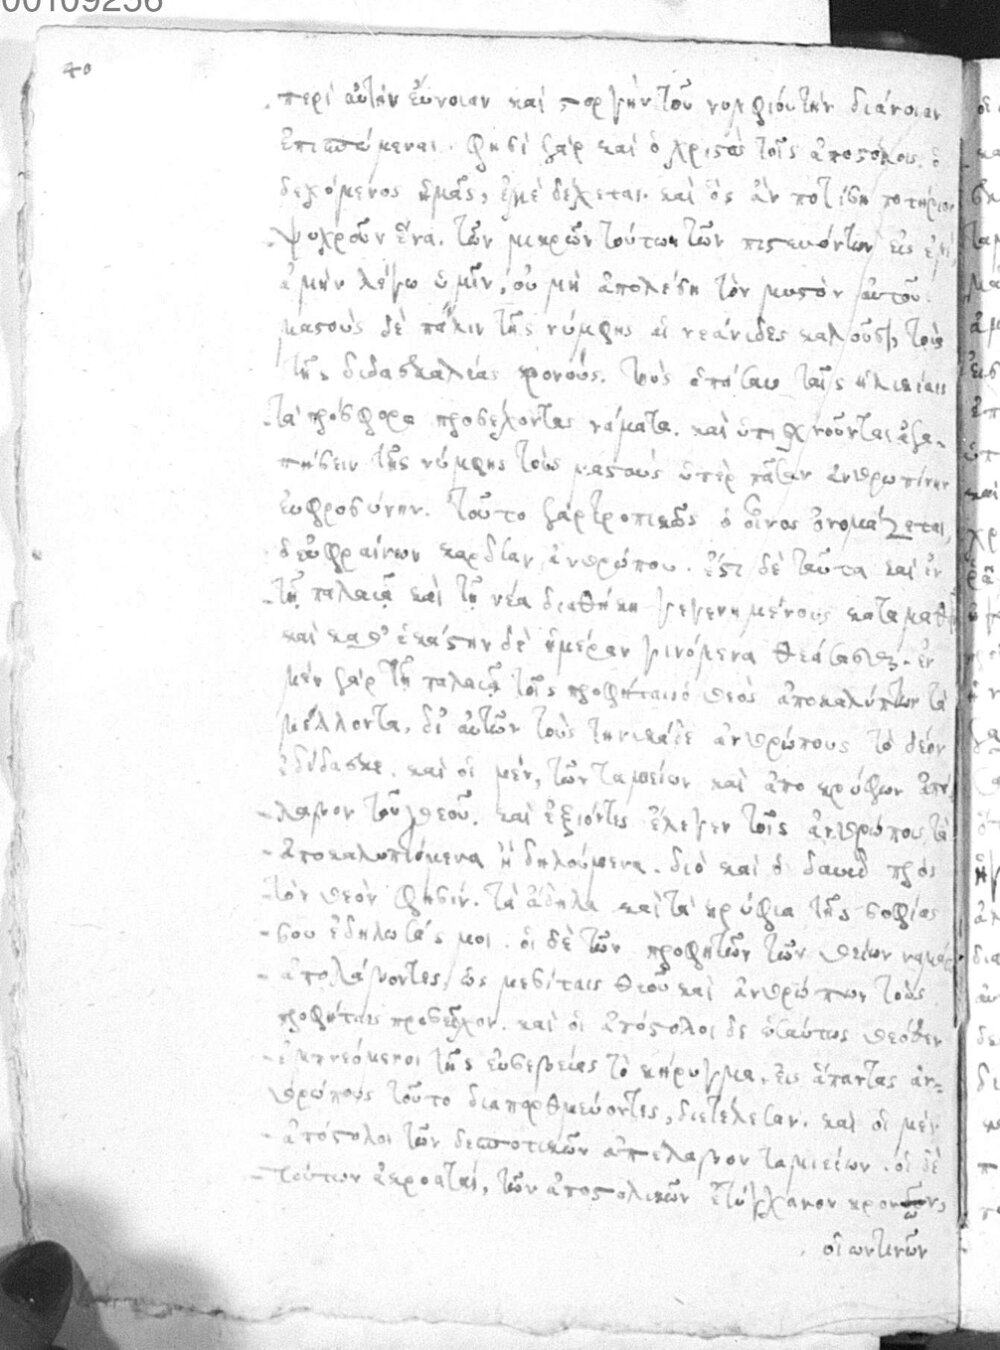 00109256
40
περὶ αὐτὴν εὔνοιαν καὶ στοργὴν τοῦ νυμφίου τὴν διάνοιαν
ἐπιστάμεναι. φησὶ γὰρ καὶ ὁ χριστὸς τοῖς ἀποστόλοις, ὁ
δεχόμενος ὑμᾶς, ἐμὲ δέχεται. καὶ ὃς ἂν ποτίση ποτήριον
ψυχροῦν ἕνα. τῶν μικρῶν τούτων τῶν πιστευόντων εἰς ἐμὲ
ἀμὴν λέγω ὑμῖν, οὐ μὴ ἀπολέση τὸν μισθὸν αὐτοῦ.
μαστοὺς δὲ πάλιν τῆς νύμφης αἱ νεάνιδες καλοῦσι, τοὺς
τῆς διδασκαλίας κρουνούς. τοὺς ἁπάσαις ταῖς ἡλικίαις
τὰ πρόσφορα προσέχοντας νάματα. καὶ ὑπισχνοῦνται ἀγα-
πήσειν τῆς νύμφης τοὺς μαστοὺς ὑπὲρ πᾶσαν ἀνθρωπίνην
εὐφροσύνην. τοῦτο γὰρ τροπικῶς ὁ οἶνος ὀνομάζεται,
δ εὐφραίνων καρδίαν ἀνθρώπου. ἔστι δὲ ταῦτα καὶ ἐν
τῇ παλαιᾷ καὶ τῇ νέα διαθήκη γεγενημένους καταμαθεῖν
καὶ καθ' ἑκάστην δὲ ἡμέραν γινόμενα θεάσασθαι. ἐν
μὲν γὰρ τῇ παλαιᾷ τοῖς προφήταις ὁ θεὸς ἀποκαλύπτων τὰ
μέλλοντα, δι' αὐτῶν τοὺς τηνικάδε ἀνθρώπους τὸ δέον
ἐδίδασκε. καὶ οἱ μὲν, τῶν ταμείων καὶ ἀποκρύφων ἀπή
λαυον τοῦ θεοῦ. καὶ ἐξιόντες ἔλεγεν τοῖς ἀνθρώποις τὰ
ἀποκαλυπτόμενα ἢ δηλούμενα. διὸ καὶ ὁ δαυὶδ πρὸς
τὸν θεὸν φησίν. τὰ ἄδηλα καὶ τὰ κρύφια τῆς σοφίας
σου ἐδήλωσάς μοι. οἱ δὲ τῶν προφητῶν τῶν θείων ναμάτων
ἀπολαύοντες, ὡς μεσίταις θεοῦ καὶ ἀνθρώπων τοὺς
προφήταις προσεῖχον. καὶ οἱ ἀπόστολοι δὲ ὡσαύτως θεόθεν
ἐμπνεόμενοι τῆς εὐσεβείας τὸ κήρυγμα, εἰς ἅπαντας ἀν-
θρώπους τοῦτο διαπορθμεύοντες, διετέλεσαν. καὶ οἱ μὲν
ἀπόστολοι τῶν δεσποτικῶν ἀπέλαυον ταμιείων. οἱ δὲ
τούτων ἀκροαταὶ, τῶν ἀποστολικῶν ἐτύγχανον κρουνῶν,
οἱωντινῶν